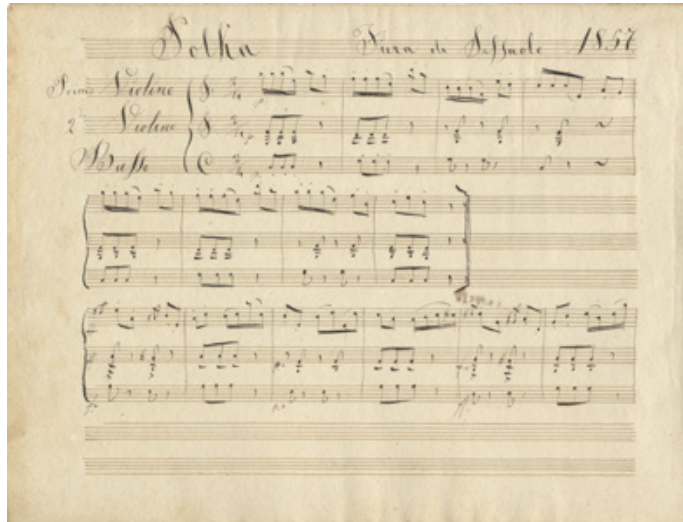 Polka Fiera di Sassuolo 1857
Primo Violino
2º Violino
Basso